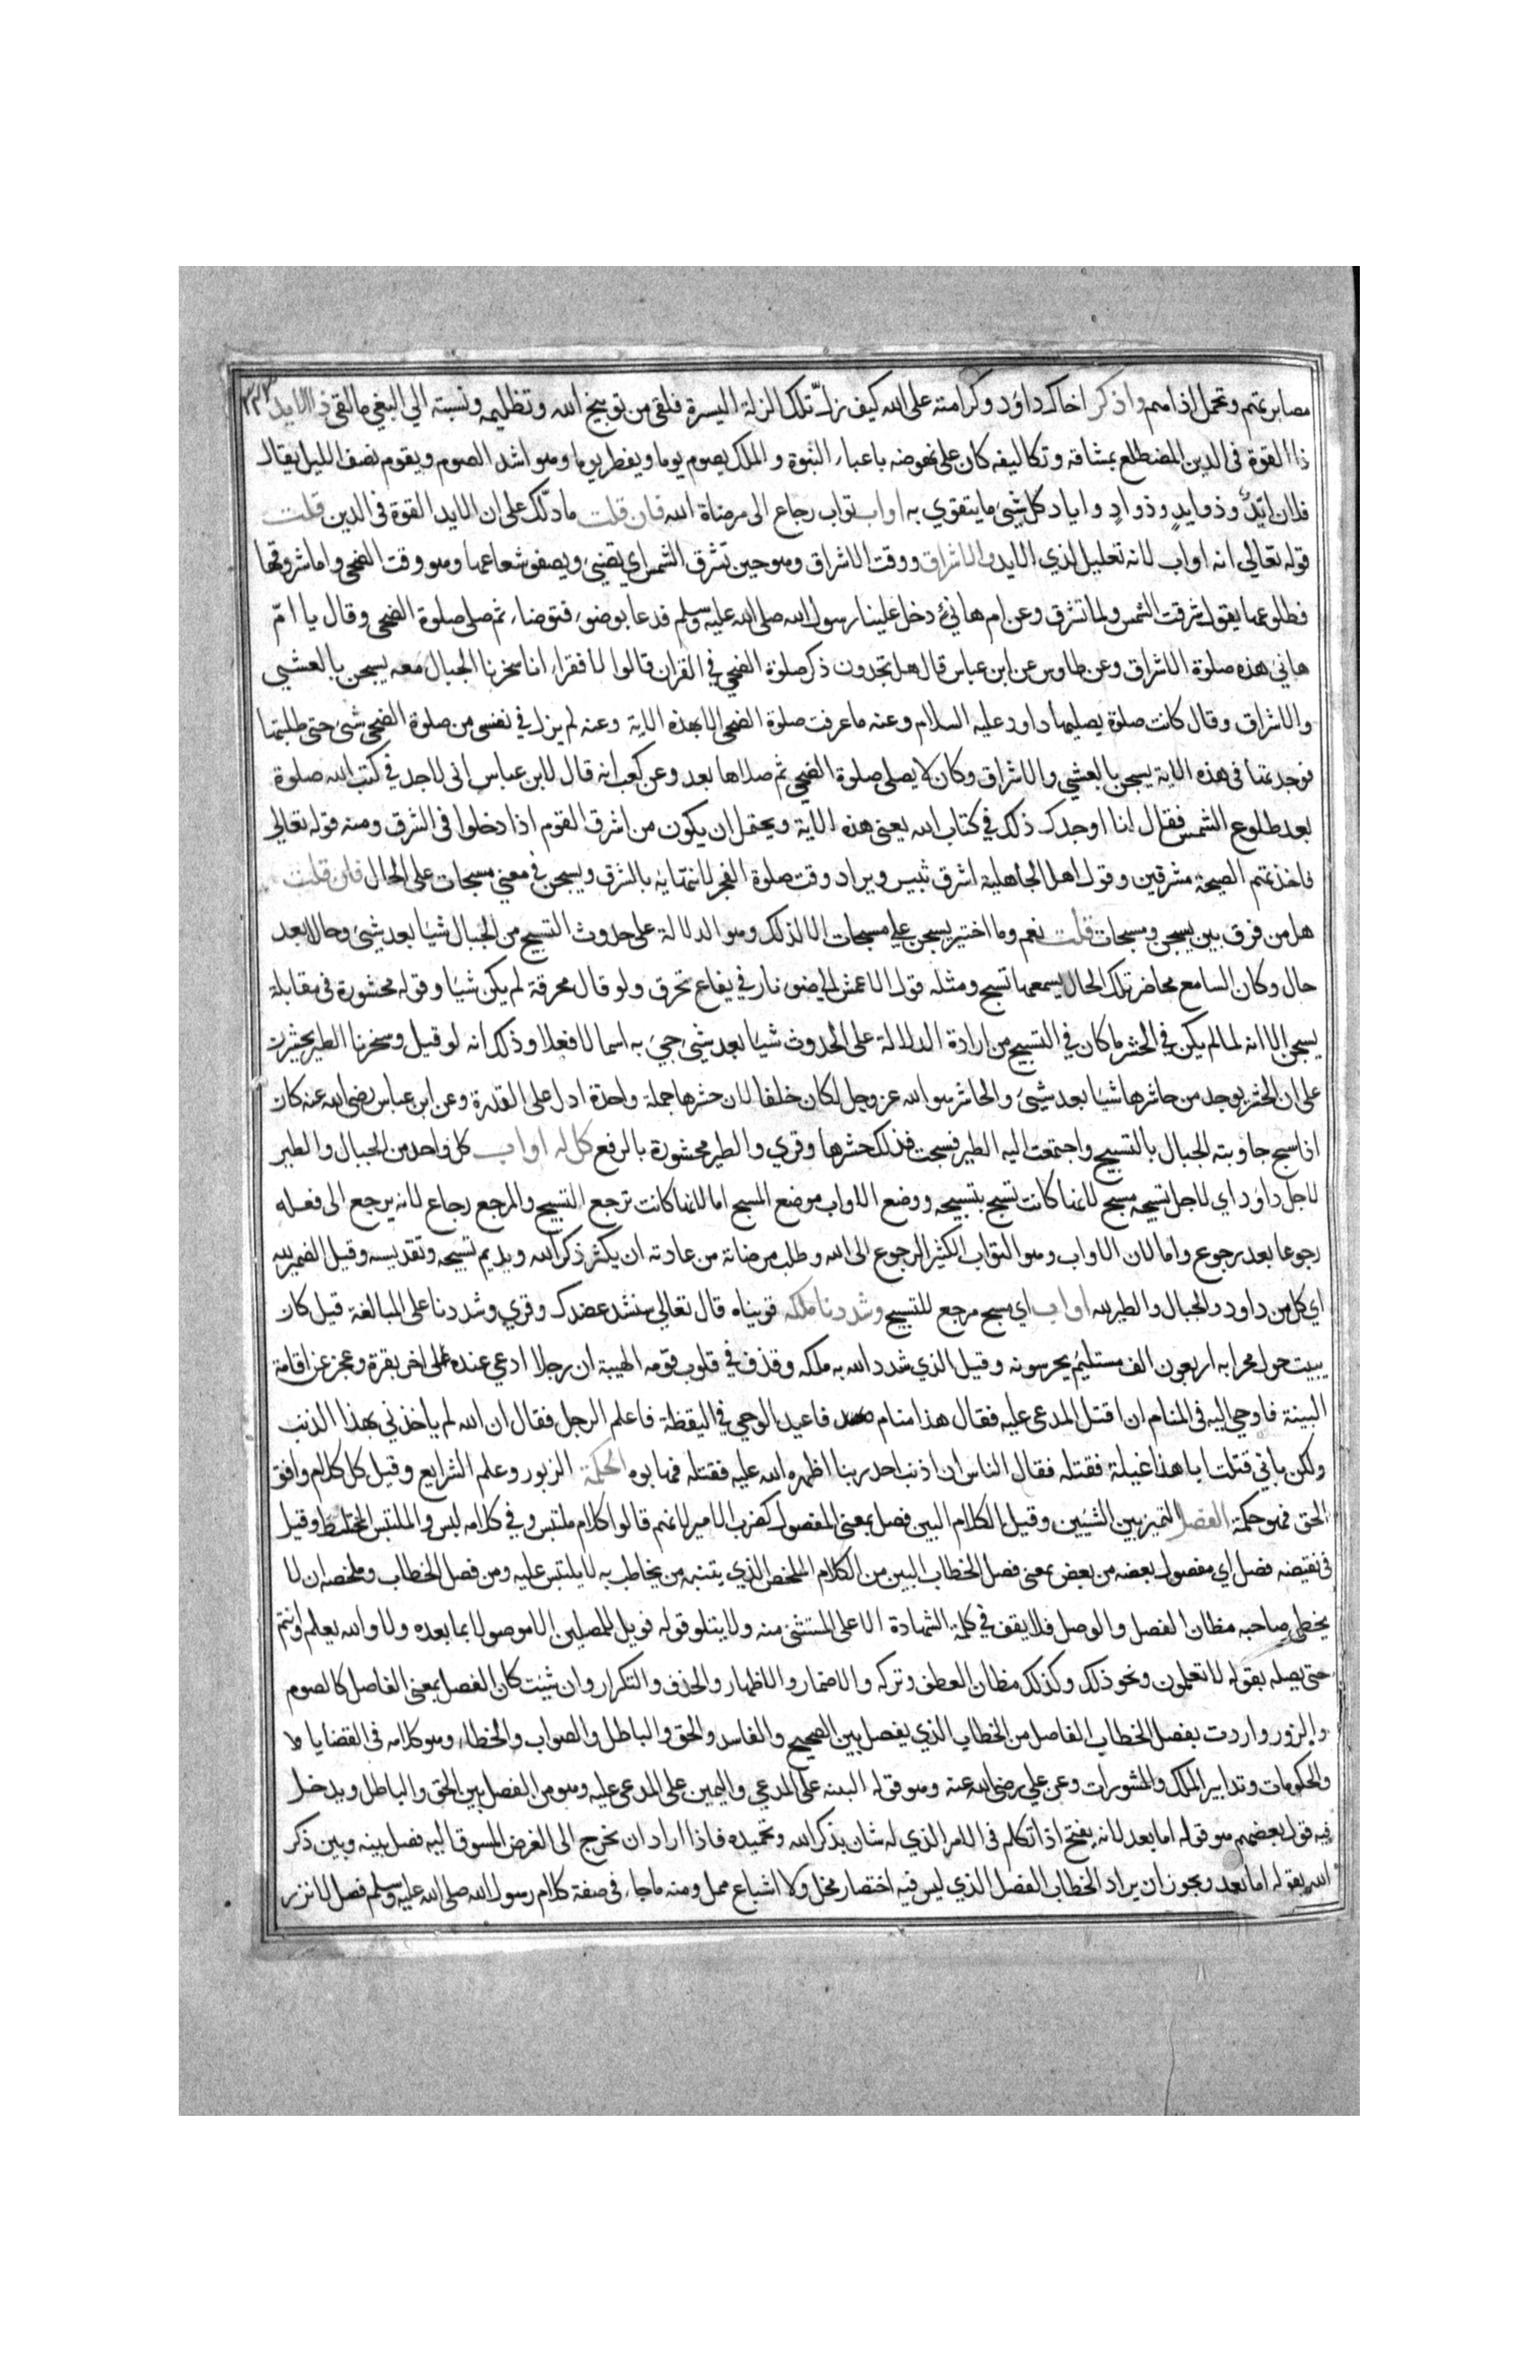 مصابرتهم وتحمل اذاهم واذكر اخاك داود وكرامته على الله كيف زل تلك الزلة اليسيرة فلقى من توبيخ الله وتظليمه ونسبته الي البغي مالقى ذا الايد
ذا القوة فى الدين المضطلع بمشاقه وتكاليفه كان على نهوضه باعباء النبوة والملك يصوم يوما ويفطر يوما وهو اشد الصوم ويقوم نصف الليل يقال
فلان ايّدٌ وذو ايدٍ وذو ادٍ واياد كل شئ ما يتقوي به اواب تواب رجاع الى مرضاة الله فان قلت ما دلّك على ان الايد القوة فى الدين قلت
قوله تعالي انه اواب لانه تعليل لذي الايد والاشراق ووقت الاشراق وهو حين تشرق الشمس اي تضيئ ويصفو شعاعها وهو وقت الضحى واما شروقها
فطلوعها يقول شرقت الشمس ولما تشرق وعن ام هانئ دخل علينا رسول الله صلى الله عليه وسلم فدعا بوضوء فتوضاء ثم صلى صلوة الضحى وقال يا امّ
هاني هذه صلوة الاشراق وعن طاوس عن ابن عباس قال هل تجدون ذكر صلوة الضحى في القران قالوا لا فقراء انا سخرنا الجبال معه يسبحن بالعشي
والاشراق وقال كانت صلوة يصليها داود عليه السلام وعنه ما عرفت صلوة الضحى الا بهذه الاية وعنه لم يزل في نفسى من صلوة الضحى شئ حتى طلبتها
فوجدتها فى هذه الاية يسبحن بالعشي والاشراق وكان لا يصلى صلوة الضحى ثم صلاها بعد وعن كعب انه قال لابن عباس انى لا اجد في كتب الله صلوة
بعد طلوع الشمس فقال انا اوجدك ذلك في كتاب الله يعنى هذه الاية ويحتمل ان يكون من اشرق القوم اذا دخلوا فى الشرق ومنه قوله تعالي
فاخذتهم الصيحة مشرقين وقول اهل الجاهلية اشرق ثبير ويراد وقت صلوة الفجر لانتهائه بالشرق ويسبحن في معني مسبحات على الحال فان قلت
هل من فرق بين يسبحن ومسبحات قلت نعم وما اختير يسبحن علي مسبحات الا لذلك وهو الدلالة على حدوث التسبيح من الجبال شيا بعد شئ وحالا بعد
حال وكان السامع محاضر تلك الحال يسمعها تسبح ومثله قول الاعشى الي ضوء نار في يفاع تحرق ولو قال محرقة لم يكن شيا وقوله محشورة فى مقابلة
يسبحن الا انه لما لم يكن في الحشر ما كان في التسبيح من ارادة الدلالة على الحدوث شيا بعد شئ جيء به اسما لا فعلا وذلك انه لو قيل وسخرنا الطير يحشرن
على ان الحشر يوجد من حاشرها شيا بعد شيئ والحاشر هو الله عز وجل لكان خلفا لان حشرها جملة واحدة ادل على القدرة وعن ابن عباس رضى الله عنه كان
اذا سبح جاوبته الجبال بالتسبيح واجتمعت اليه الطير فسبحت فذلك حشرها وقري والطير محشورة بالرفع كل له اواب كل واحد من الجبال والطير
لاجل داود اي لاجل تسبيحه مسبح لانها كانت تسبح بتسبيحه ووضع الاواب موضع المسبح اما لانها كانت ترجع التسبيح والمرجع رجاع لانه يرجع الى فعله
رجوعا بعد رجوع واما لان الاواب وهو التواب الكثير الرجوع الى الله وطلب مرضاته من عادته ان يكثر ذكر الله ويديم تسبيحه وتقديسه وقيل الضمير لله
اي كل من داود والجبال والطير لله اواب اي مسبح مرجع للتسبيح وشددنا ملكه قويناه قال تعالي سنشد عضدك وقري وشددنا على المبالغة قيل كان
يبيت حول محرابه اربعون الف مستليم يحرسونه وقيل الذي شدد الله به ملكه وقذف في قلوب قومه الهيبة ان رجلا ادعي عنده على اخر بقرة وعجز عن اقامة
البينة فاوحي اليه فى المنام ان اقتل المدعى عليه فقال هذا منام فاعيد الوحي في اليقظة فاعلم الرجل فقال ان الله لم ياخذني بهذا الذنب
ولكن باني قتلت ابا هذا غيلة فقتله فقال الناس ان اذنب احد ذنبا اظهره الله عليه فقتله فهابوه الحكمة الزبور وعلم الشرايع وقيل كل كلام وافق
الحق فهو حكمة الفصل التميز بين الشيئين وقيل الكلام البين فصل بمعنى المفصول كضرب الامير لانهم قالوا كلام ملتبس وفي كلامه لبس والملتبس المختلط وقيل
فى نقيضه فصل اي مفصول بعضه من بعض بمعنى فصل الخطاب البين من الكلام الملخص الذي يتنبه من يخاطب به لا يلتبس عليه ومن فصل الخطاب وملخصه ان لا
يخطى صاحبه مظان الفصل والوصل فلا يقف في كلمة الشهادة الا على المستثنى منه ولا يتلو قوله فويل للمصلين الا موصولا بما بعده ولا والله يعلم وانتم
حتى يصله بقوله لا تعلمون ونحو ذلك وكذلك مظان العطف وتركه والاضمار والاظهار والحذف والتكرار وان شئت كان الفصل بمعنى الفاصل كالصوم
والزور واردت بفصل الخطاب الفاصل من الخطاب الذي يفصل بين الصحيح والفاسد والحق والباطل والصواب والخطاء وهو كلامه فى القضايا
والحكومات وتدابير الملك والمشورات وعن علي رضى الله عنه وهو قوله البينه على المدعي واليمين على المدعى عليه وهو من الفصل بين الحق والباطل ويدخل
فيه قول بعضهم هو قوله اما بعد لانه يفتتح اذا تكلم فى الامر الذي له شان بذكر الله وتحميده فاذا اراد ان يخرج الى الغرض المسوق اليه فصل بينه وبين ذكر
الله بقوله اما بعد ويجوز ان يراد الخطاب الفصل الذي ليس فيه اختصار مخل ولا اشباع ممل ومنه ما جاء فى صفة كلام رسول الله صلى الله عليه وسلم فصل لا نزر